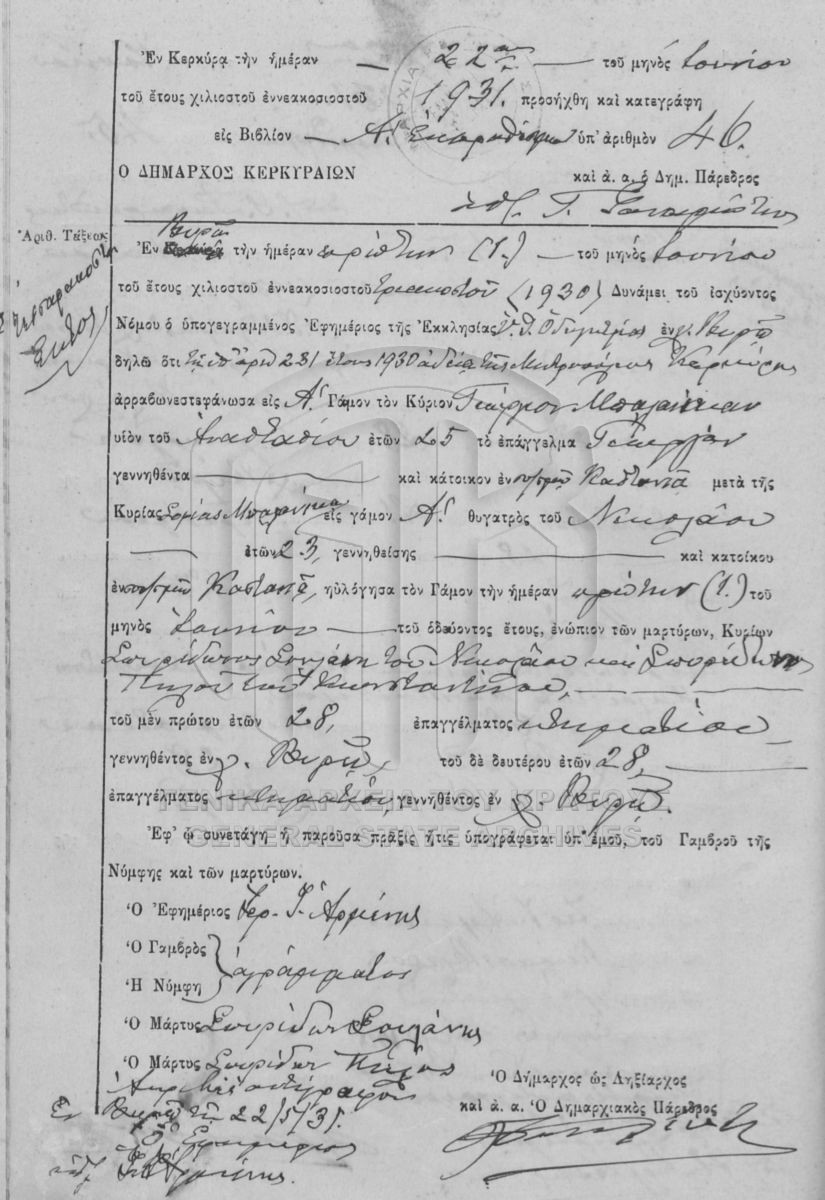 Ἐν Κερκύρᾳ τὴν ἡμέραν — 22αν — τοῦ μηνὸς Ἰουνίου
τοῦ ἔτους χιλιοστοῦ ἐννεακοσιοστοῦ 1931. προσήχθη καὶ κατεγράφη
εἰς Βιβλίον — Α! ὑπ' ἀριθμὸν 46.
Ο ΔΗΜΑΡΧΟΣ ΚΕΡΚΥΡΑΙΩΝ καὶ ἀ. α. ὁ Δημ. Πάρεδρος
Γ.
Ἀριθ. Τάξεως
τεσσαρακοστὴ
ἕκτος
Ἐν τὴν ἡμέραν πρώτην (1.) — τοῦ μηνὸς Ἰουνίου
τοῦ ἔτους χιλιοστοῦ ἐννεακοσιοστοῦ τριακοστοῦ (1930) Δυνάμει τοῦ ἰσχύοντος
Νόμου ὁ ὑπογεγραμμένος Ἐφημέριος τῆς Ἐκκλησίας Ὑ. Θ. Ὁδηγητρίας ἐν χ.
δηλῶ ὅτι τῇ ὑπ' ἀριθ 231 ἔτους 1930 ἀδείᾳ τῆς Μητροπόλεως Κερκύρας
ἀρραβωνεστεφάνωσα εἰς Α! Γάμον τὸν Κύριον Γεώργιον
υἱὸν τοῦ Ἀναστασίου ἐτῶν 25 τὸ ἐπάγγελμα Γεωργὸν
γεννηθέντα — καὶ κάτοικον ἐν Καστανιᾷ μετὰ τῆς
Κυρίας Σοφίας εἰς γάμον Α! θυγατρὸς τοῦ Νικολάου
— ἐτῶν 23, γεννηθείσης — καὶ κατοίκου
ἐν Καστανιᾷ, ηὐλόγησα τὸν Γάμον τὴν ἡμέραν πρώτην (1.) τοῦ
μηνὸς Ἰουνίου — τοῦ ὁδεύοντος ἔτους, ἐνώπιον τῶν μαρτύρων, Κυρίων
Σπυρίδωνος Σουλάνη τοῦ Νικολάου καὶ Σπυρίδωνος
τοῦ Κωνσταντίνου, — — —
τοῦ μὲν πρώτου ἐτῶν 28, ἐπαγγέλματος κτηματίου
γεννηθέντος ἐν χ. Βυρῷ, τοῦ δὲ δευτέρου ἐτῶν 28, —
ἐπαγγέλματος κτηματίου, γεννηθέντος ἐν χ. Βυρῷ.
ΓΕΝΙΚΑ ΑΡΧΕΙΑ ΤΟΥ ΚΡΑΤΟΥΣ
GENERAL STATE ARCHIVES
Ἐφ' ᾧ συνετάγη ἡ παροῦσα πρᾶξις ἥτις ὑπογράφεται ὑπ' ἐμοῦ, τοῦ Γαμβροῦ τῆς
Νύμφης καὶ τῶν μαρτύρων.
Ὁ Ἐφημέριος Ἱερ. Ἀρμένης
Ὁ Γαμβρὸς } ἀγράμματος
Ἡ Νύμφη
Ὁ Μάρτυς Σπυρίδων Σουλάνης
Ὁ Μάρτυς Σπυρίδων
Ἀκριβὲς ἀντίγραφον
Ἐν Βυρῷ τῇ 22/5/31.
Ὁ Ἐφημέριος
Ἀρμένης.
Ὁ Δήμαρχος ὡς Ληξίαρχος
καὶ ἀ. α. Ὁ Δημαρχιακὸς Πάρεδρος